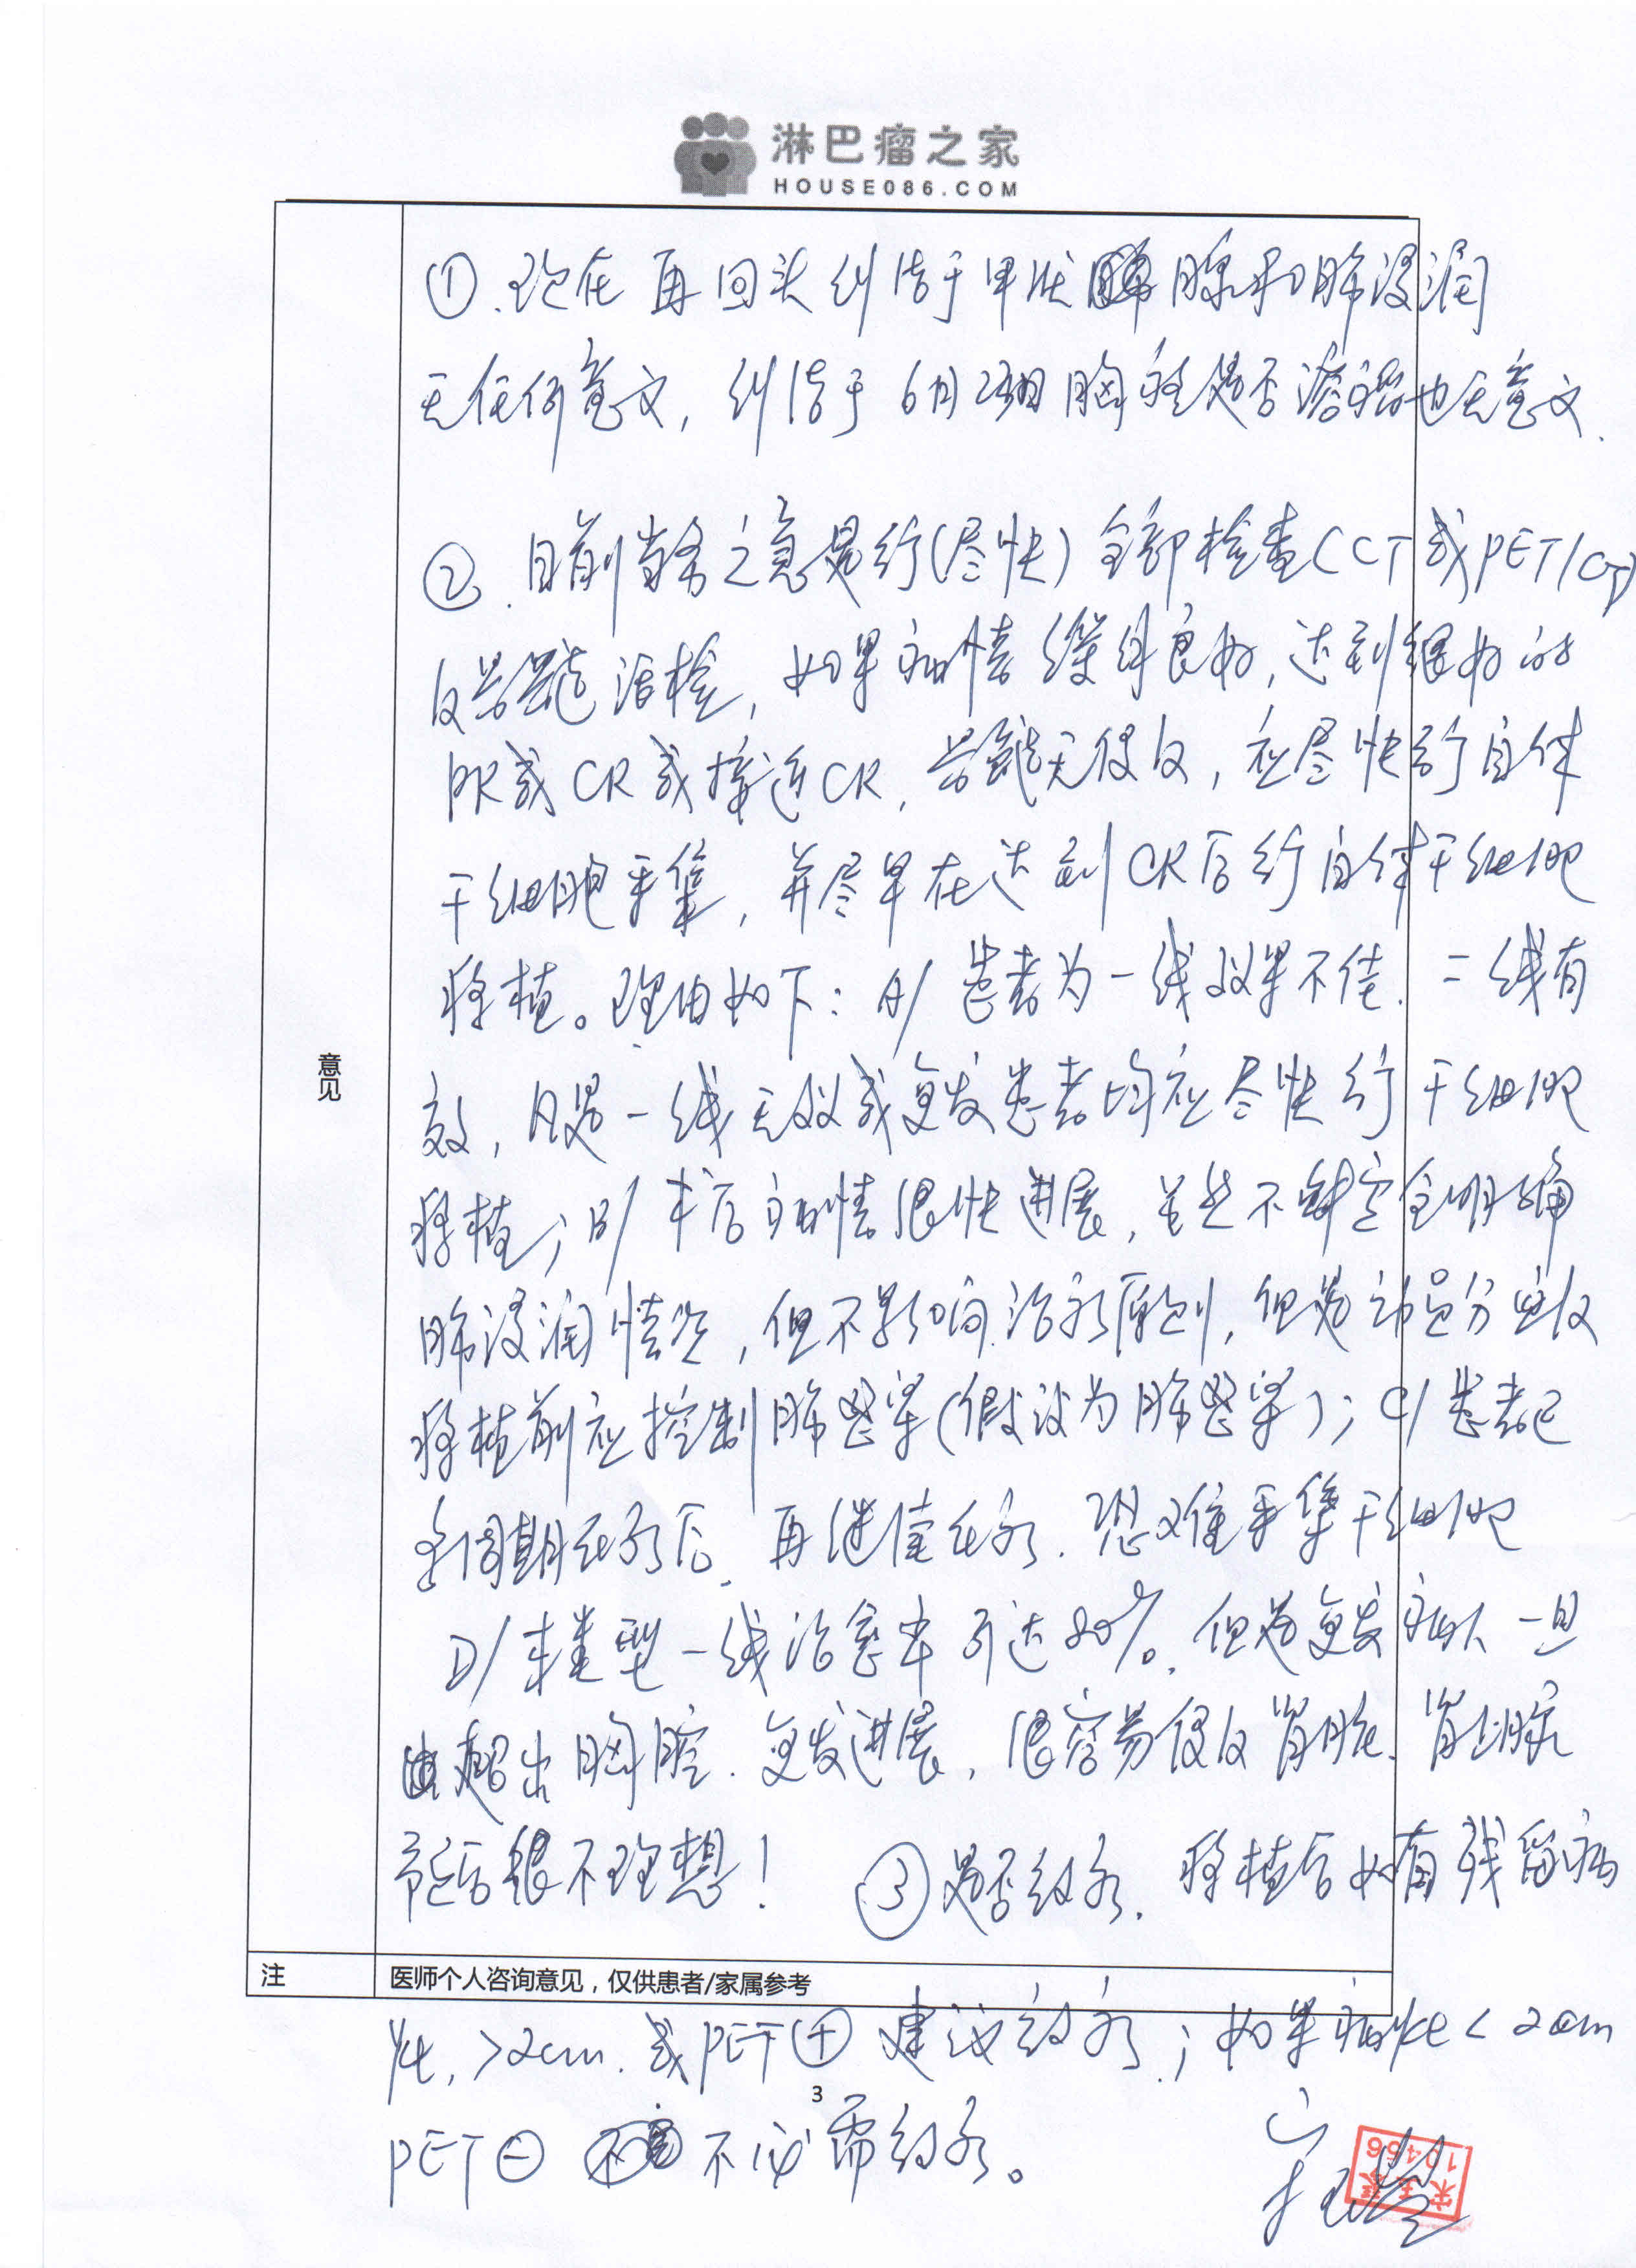 淋巴瘤之家
HOUSE086.COM
①.现在再回头纠结于甲状腺和肺浸润
无任何意义,纠结于6月2日胸水是否渗漏也无意义.
②.目前当务之急是行(尽快)全部检查(CT或PET/CT)
及骨髓活检,如果病情缓解良好,达到很好的
PR或CR或接近CR,骨髓无侵及,应尽快行自体
干细胞采集,并尽早在达到CR后行自体干细胞
移植。理由如下:A/患者为一线效果不佳.二线有
效,凡是一线无效或复发患者均应尽快行干细胞
移植;B/术后病情很快进展,虽然不能完全明确
肺浸润情况,但不影响治疗原则,但是动员分以及
移植前应控制肺感染(假设为肺感染);C/患者已
多周期化疗后,再继续化疗.恐难采集干细胞
D/本类型一线治愈率可达80%.但是复发病人一旦
超出胸腔.复发进展,很容易侵及肾脏.肾上腺
预后很不理想! ③是否放疗.移植后如有残留病
意见
注 医师个人咨询意见,仅供患者/家属参考
灶,>2cm.或PET⊕建议放疗;如果病灶<2cm
3
PET⊖不必需放疗。
10456